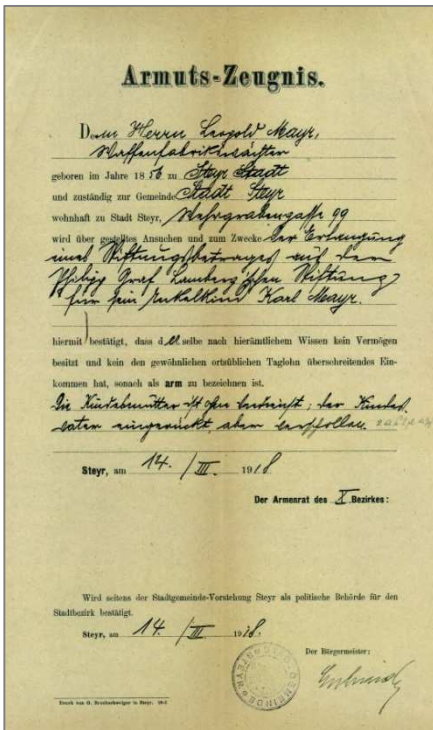 Armuts-Zeugnis.
Dem Herrn Leopold Mayr,
Waffenfabrikswächter
geboren im Jahre 1856 zu Steyr Stadt
und zuständig zur Gemeinde Stadt Steyr
wohnhaft zu Stadt Steyr, Wehrgrabengasse 99
wird über gestelltes Ansuchen und zum Zwecke der Erlangung
eines Stiftungsbetrages aus dem
Graf Lamberg'schen Stiftung
für sein Enkelkind Karl Mayr.
hiermit bestätigt, dass derselbe nach hierämtlichem Wissen kein Vermögen
besitzt und kein den gewöhnlichen ortsüblichen Taglohn überschreitendes Ein-
kommen hat, sonach als arm zu bezeichnen ist.
Die Kindesmutter ist ohne; der Kindes-
vater eingerückt, aber verschollen.
Steyr, am 14. / III. 1918
Der Armenrat des X Bezirkes:
Wird seitens der Stadtgemeinde-Vorstehung Steyr als politische Behörde für den
Stadtbezirk bestätigt.
Steyr, am 14. / III. 1918.
Der Bürgermeister:
GEMEINDE STEYR